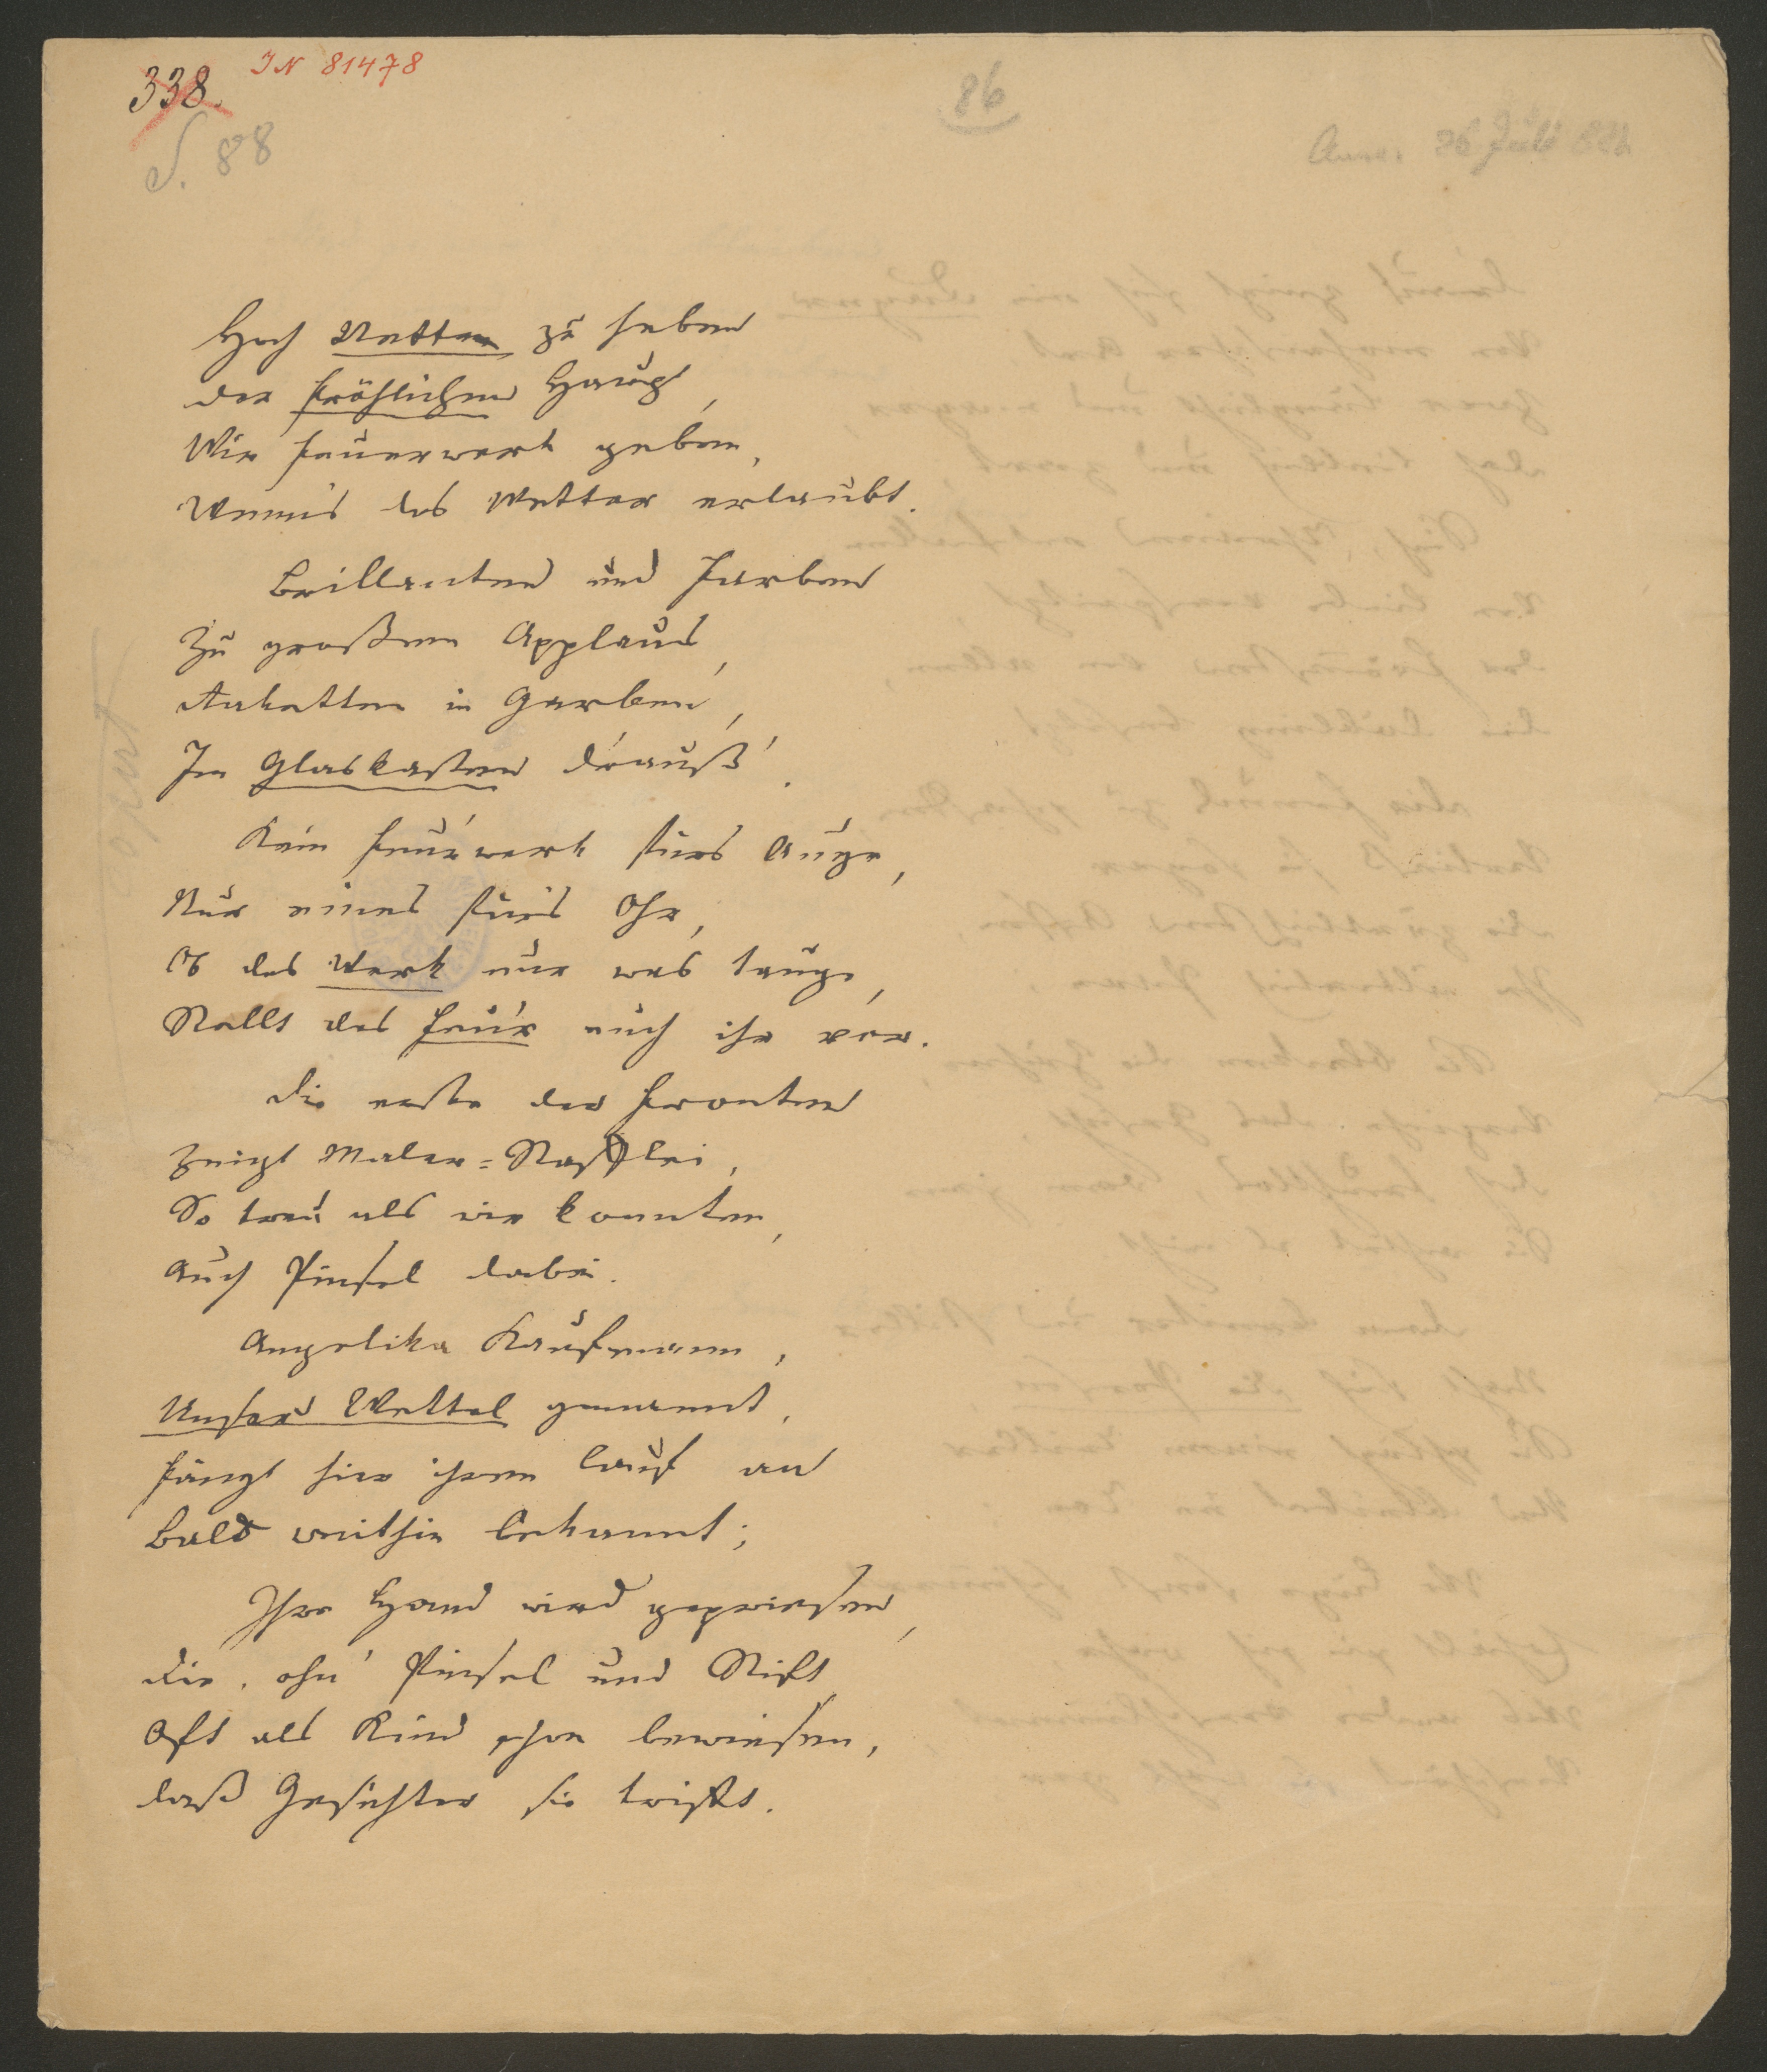 338. IN 81478
S. 88
86
Anna. 26 Juli 884
Hoch Netten zu heben
der fröhlichen Haupt,
Wir Feuerwerk geben,
Wenn's das Wetter erlaubt.
Brillanten und Farben
Zu großem Applaus,
Raketten in Garben,
Im Glaskasten d'rauß'.
Kein Feu'rwerk fürs Auge,
Nur eines für's Ohr,
Ob das Werk nur was tauge,
Stellt das Feu'r euch ihr vor.
Die erste der Fronten
Zeigt Maler-Staffelei,
So treu als wir konnten,
Auch Pinsel dabei.
Angelika Kaufmann,
Unser Nettel genannt,
Fängt hier ihren Lauf an
Bald weithin bekannt;
Ihre Hand wird gepriesen,
die, ohn' Pinsel und Stift
Oft als Kind schon bewiesen,
daß Gesichter sie trifft.